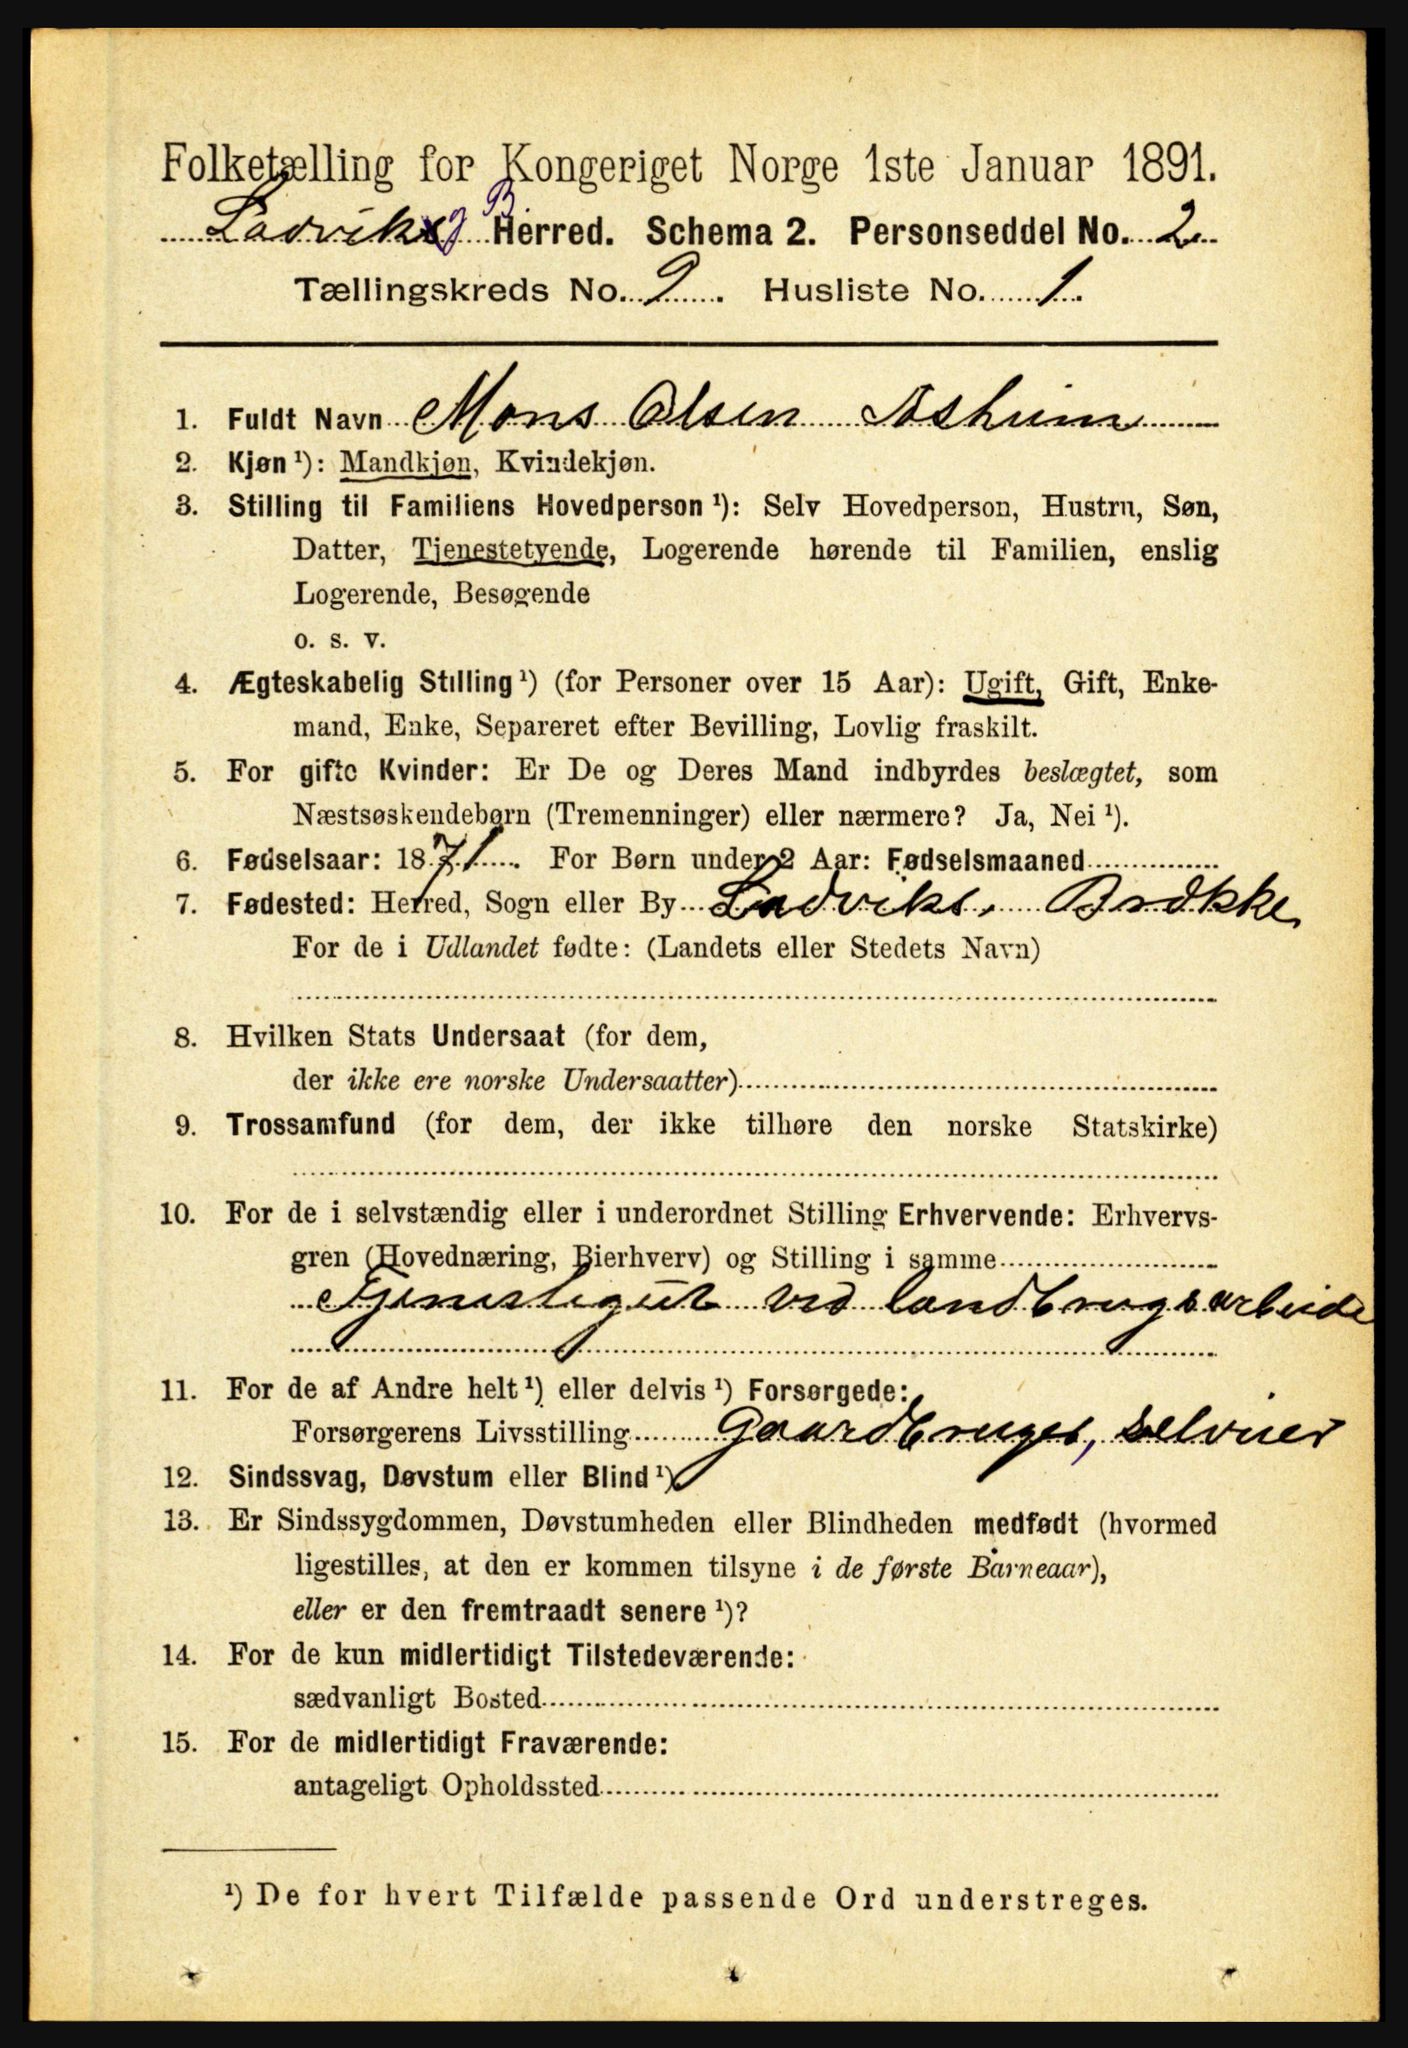 Folketælling for Kongeriget Norge 1ste Januar 1891.
Ladvik og B Herred. Schema 2. Personseddel No. 2
Tællingskreds No. 9. Husliste No. 1.
1. Fuldt Navn Mons Olsen Asheim
2. Kjøn ¹): Mandkjøn, Kvindekjøn.
3. Stilling til Familiens Hovedperson ¹): Selv Hovedperson, Hustru, Søn,
Datter, Tjenestetyende, Logerende hørende til Familien, enslig
Logerende, Besøgende
o. s. v.
4. Ægteskabelig Stilling ¹) (for Personer over 15 Aar): Ugift, Gift, Enke-
mand, Enke, Separeret efter Bevilling, Lovlig fraskilt.
5. For gifte Kvinder: Er De og Deres Mand indbyrdes beslægtet, som
Næstsøskendebørn (Tremenninger) eller nærmere? Ja, Nei ¹).
6. Fødselsaar: 1871. For Børn under 2 Aar: Fødselsmaaned
7. Fødested: Herred, Sogn eller By Ladviks, Brække
For de i Udlandet fødte: (Landets eller Stedets Navn)
8. Hvilken Stats Undersaat (for dem,
der ikke ere norske Undersaatter)
9. Trossamfund (for dem, der ikke tilhøre den norske Statskirke)
10. For de i selvstændig eller i underordnet Stilling Erhvervende: Erhvervs-
gren (Hovednæring, Bierhverv) og Stilling i samme
Tjenestegut ved landbrugsarbeide
11. For de af Andre helt ¹) eller delvis ¹) Forsørgede:
Forsørgerens Livsstilling Gaardbruger, selveier
12. Sindssvag, Døvstum eller Blind ¹).
13. Er Sindssygdommen, Døvstumheden eller Blindheden medfødt (hvormed
ligestilles, at den er kommen tilsyne i de første Barneaar),
eller er den fremtraadt senere ¹)?
14. For de kun midlertidigt Tilstedeværende:
sædvanligt Bosted
15. For de midlertidigt Fraværende:
antageligt Opholdssted
¹) De for hvert Tilfælde passende Ord understreges.